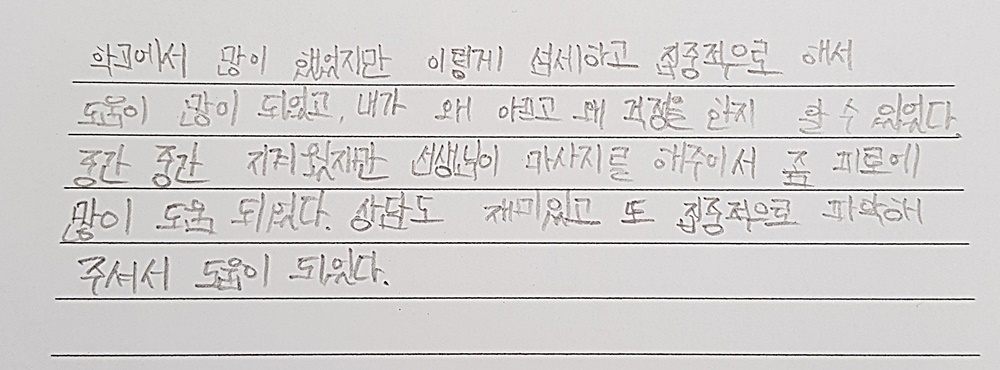 학교에서 많이 했었지만 이렇게 섬세하고 집중적으로 해서
도움이 많이 되었고, 내가 왜 아프고 왜 걱정을 한지 알 수 있었다.
중간 중간 지겨웠지만 선생님이 마사지를 해주어서 좀 피로에
많이 도움 되었다. 상담도 재미있고 또 집중적으로 파악해
주셔서 도움이 되었다.